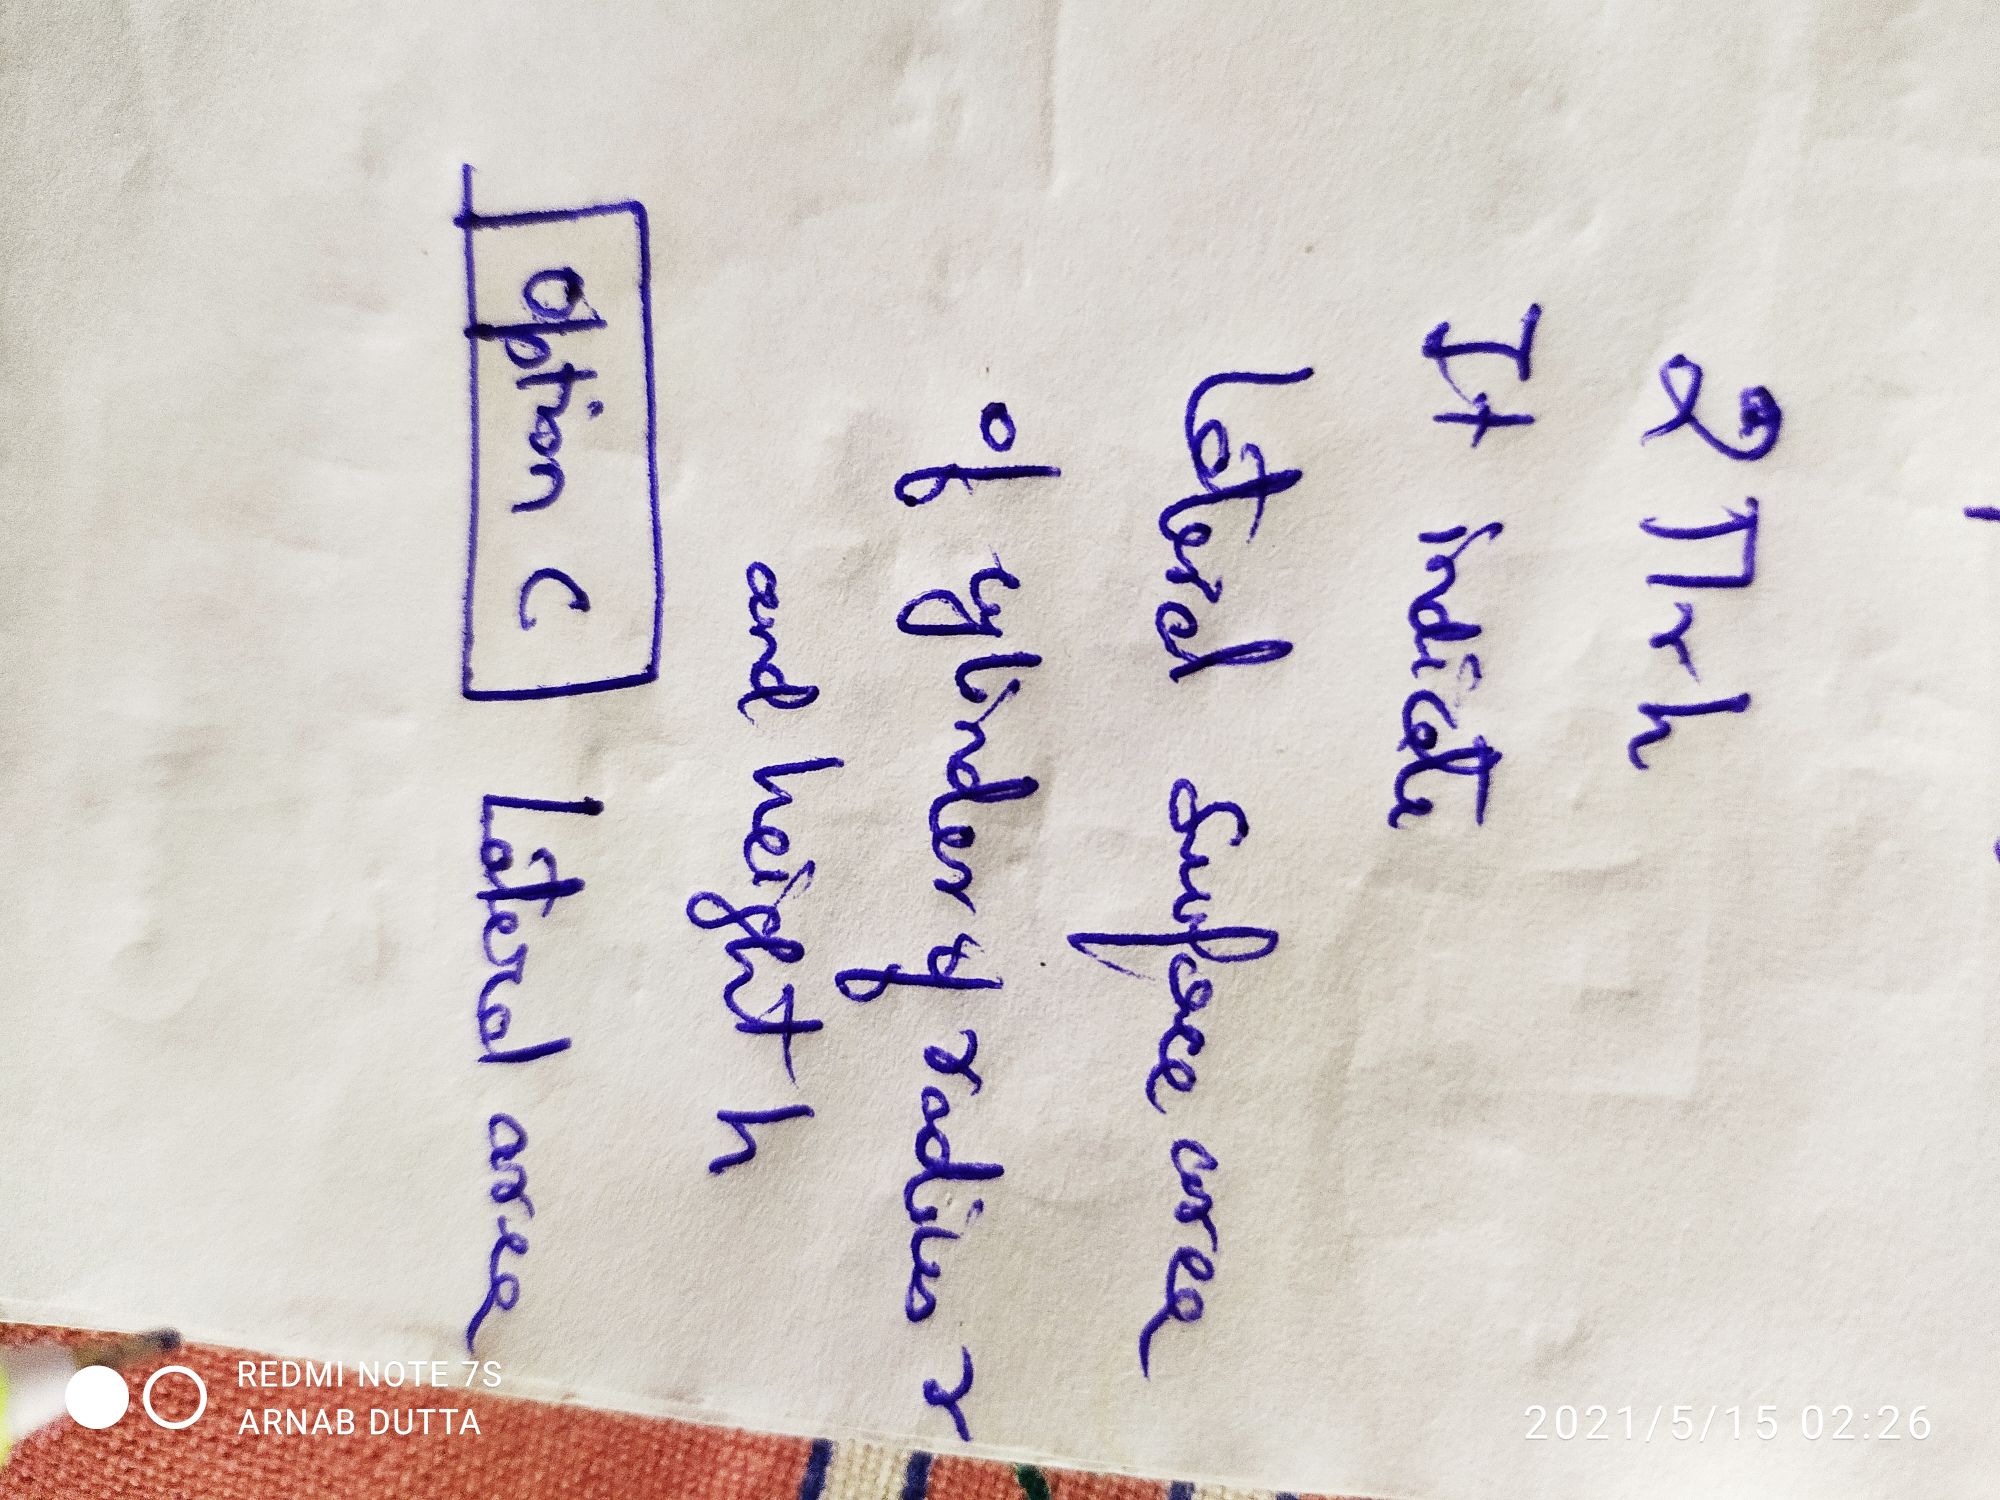 2πrh
It indicate
Lateral surface area
of cylinder of radius r
and height h
Option C Lateral area
REDMI NOTE 7S
ARNAB DUTTA
2021/5/15 02:26